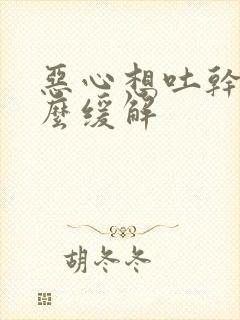 惡心想吐幹
麼缓解
胡冬冬